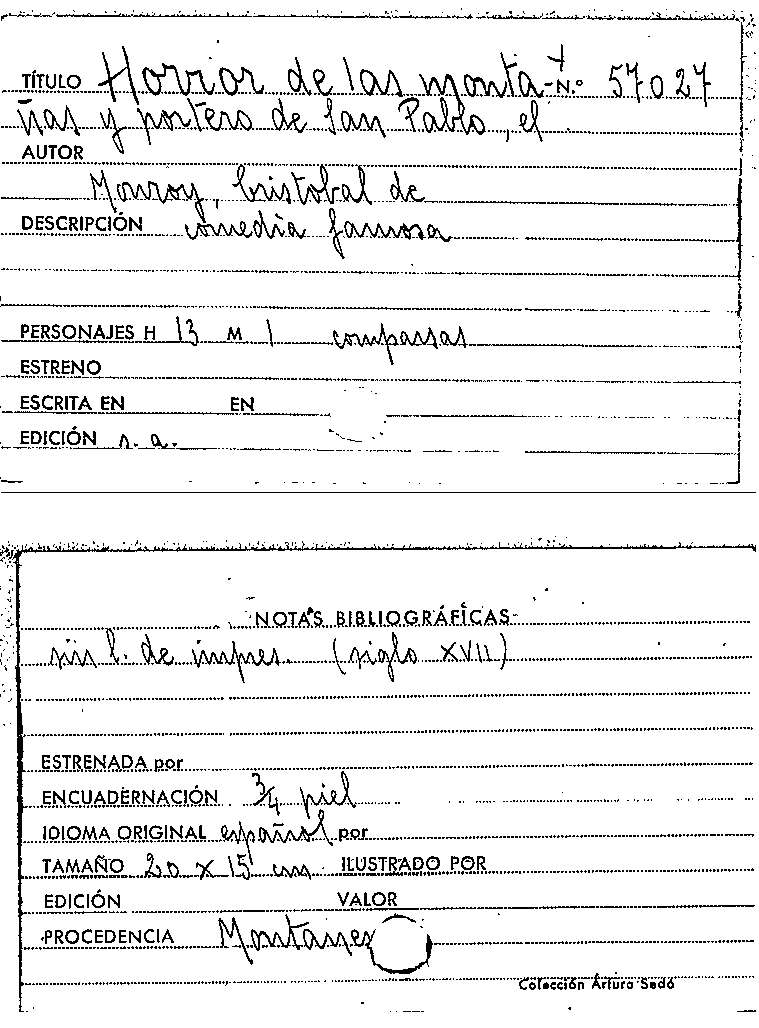 TÍTULO Horror de las monta- N.º 57027
ñas y portero de San Pablo, el
AUTOR
Monroy, Cristobal de
DESCRIPCIÓN comedia famosa
PERSONAJES H 13 M 1 comparsas
ESTRENO
ESCRITA EN EN
EDICIÓN s. a.
NOTAS BIBLIOGRÁFICAS
sin l. de impres. (siglo XVII)
ESTRENADA por
ENCUADERNACIÓN 3/4 piel
IDIOMA ORIGINAL español por
TAMAÑO 20 x 15 cm ILUSTRADO POR
EDICIÓN VALOR
PROCEDENCIA Montaner
Colección Arturo Sedó